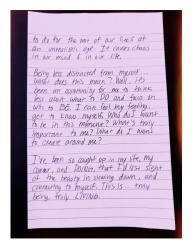 to do for the rest of our lives at
an immature age. It causes chaos
in our mind & in our life.
Being less distracted from myself...
What does this mean? Well, it's
been an opportunity for me to think
less about what to DO and focus on
who to BE. I can feel my feelings,
get to know myself. Who do I want
to be in this moment? What's truly
important to me? What do I want
to create around me?
I've been so caught up in my life, my
career, and DOING, that I'd lost sight
of the beauty in slowing down, and
connecting to myself. THIS IS... truly
being, truly LIVING.